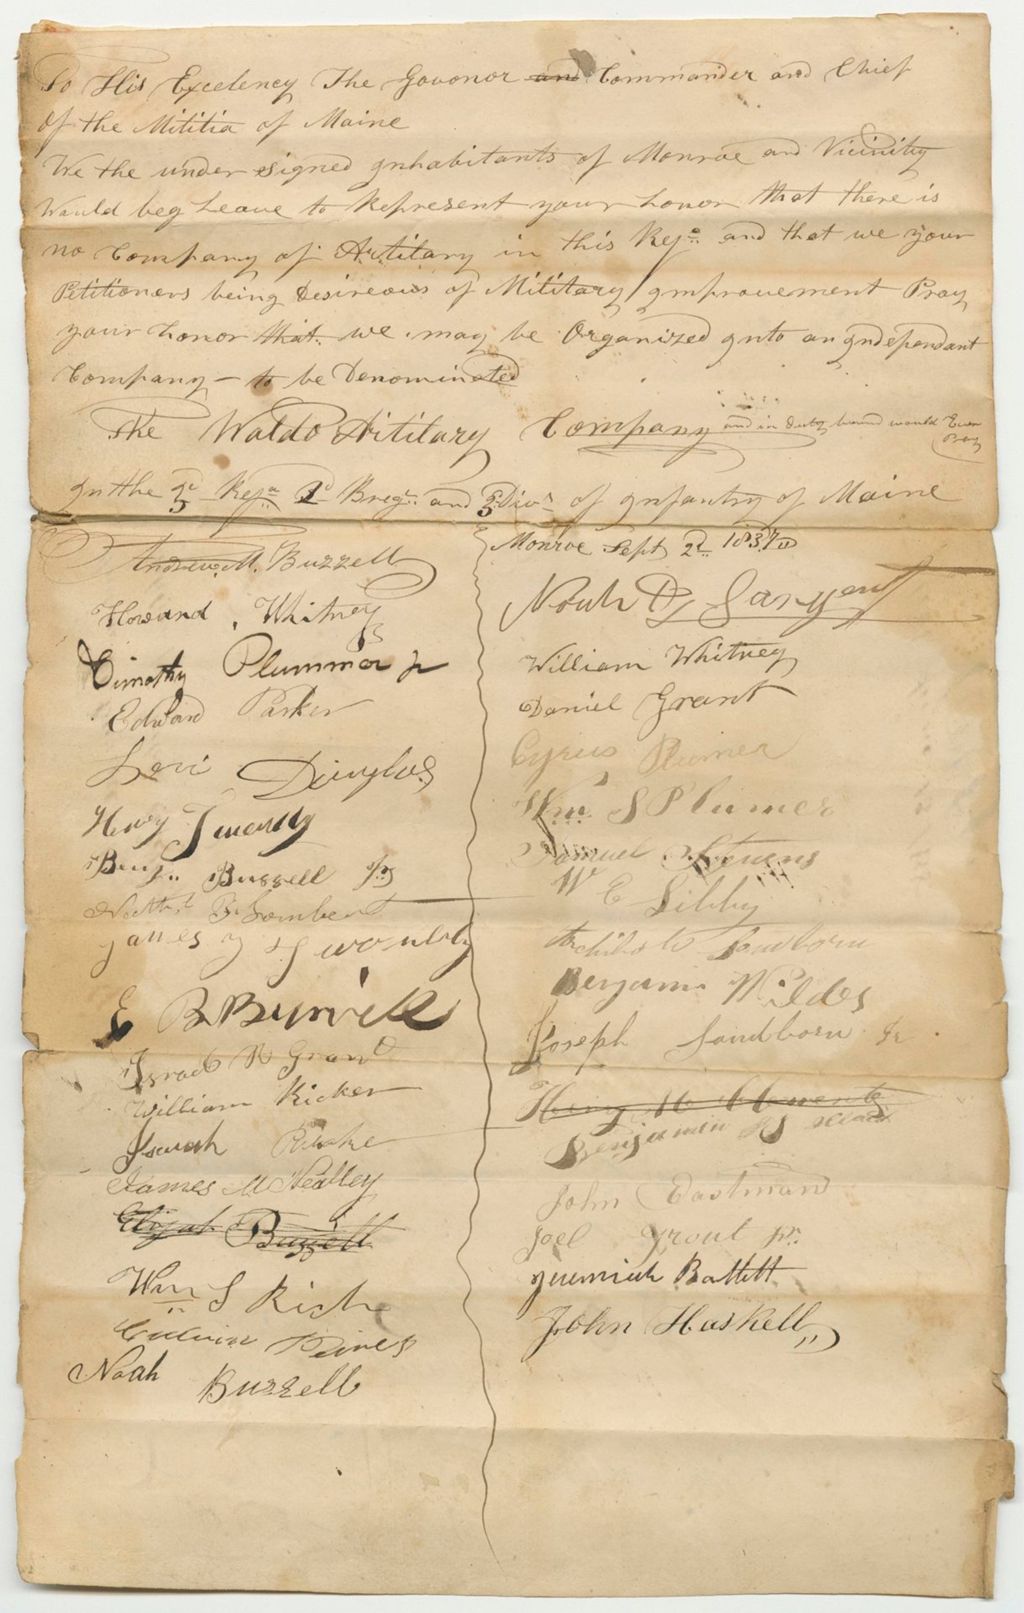 To His Excelency The Govonor and Commander and Chief
of the Militia of Maine
We the under signed Inhabitants of Monroe and Vicinity
Would beg Leave to Represent your honor that there is
no Company of Artilary in this Reg. and that we your
Petitioners being Desireous of Military Improvement Pray
your honor that we may be Organized Into an Independant
Company – to be Denominated
The Waldo Artilary Company and in duty bound would Ever Pray
In the Reg. Brig. and Div. of Infantry of Maine
Monroe Sept 2d 1837
Andrew M. Buzzell
Howard Whitney
Timothy Plummer Jr
Edward Parker
Levi Douglas
Henry Twombly
Benj. Buzzell Jr
James Twombly
E B Bunnell
Israel H Grant
William Ricker
Isaiah Blake
James M Nealley
Elijah Buzzell
Wm S Rich
Calvin Peirces
Noah Buzzell
Noah D Sargent
William Whitney
Daniel Grant
Cyrus Plumer
Wm. S Plumer
Samuel Stevens
W E Libby
Archibald Sanborn
Benjamin Wildes
Joseph Sandborn Jr
Henry Clements
Benjamin
John Eastman
Joel Grout Jr.
Jeremiah Batlett
John Haskell